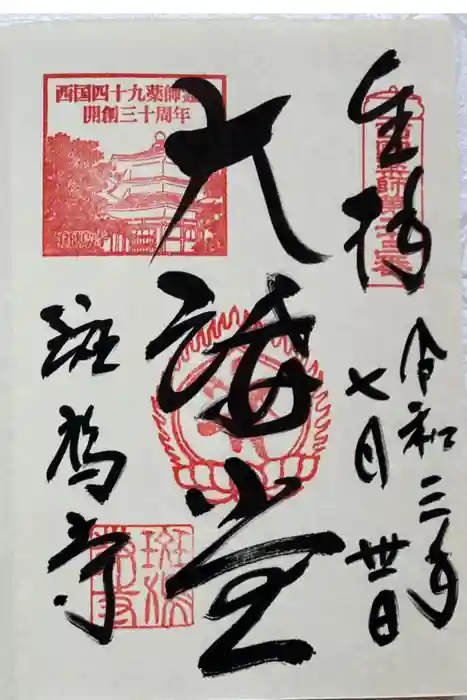 奉拝
令和三年
七月丗日
西国四十九薬師霊
開創三十周年
大講堂
斑鳩寺